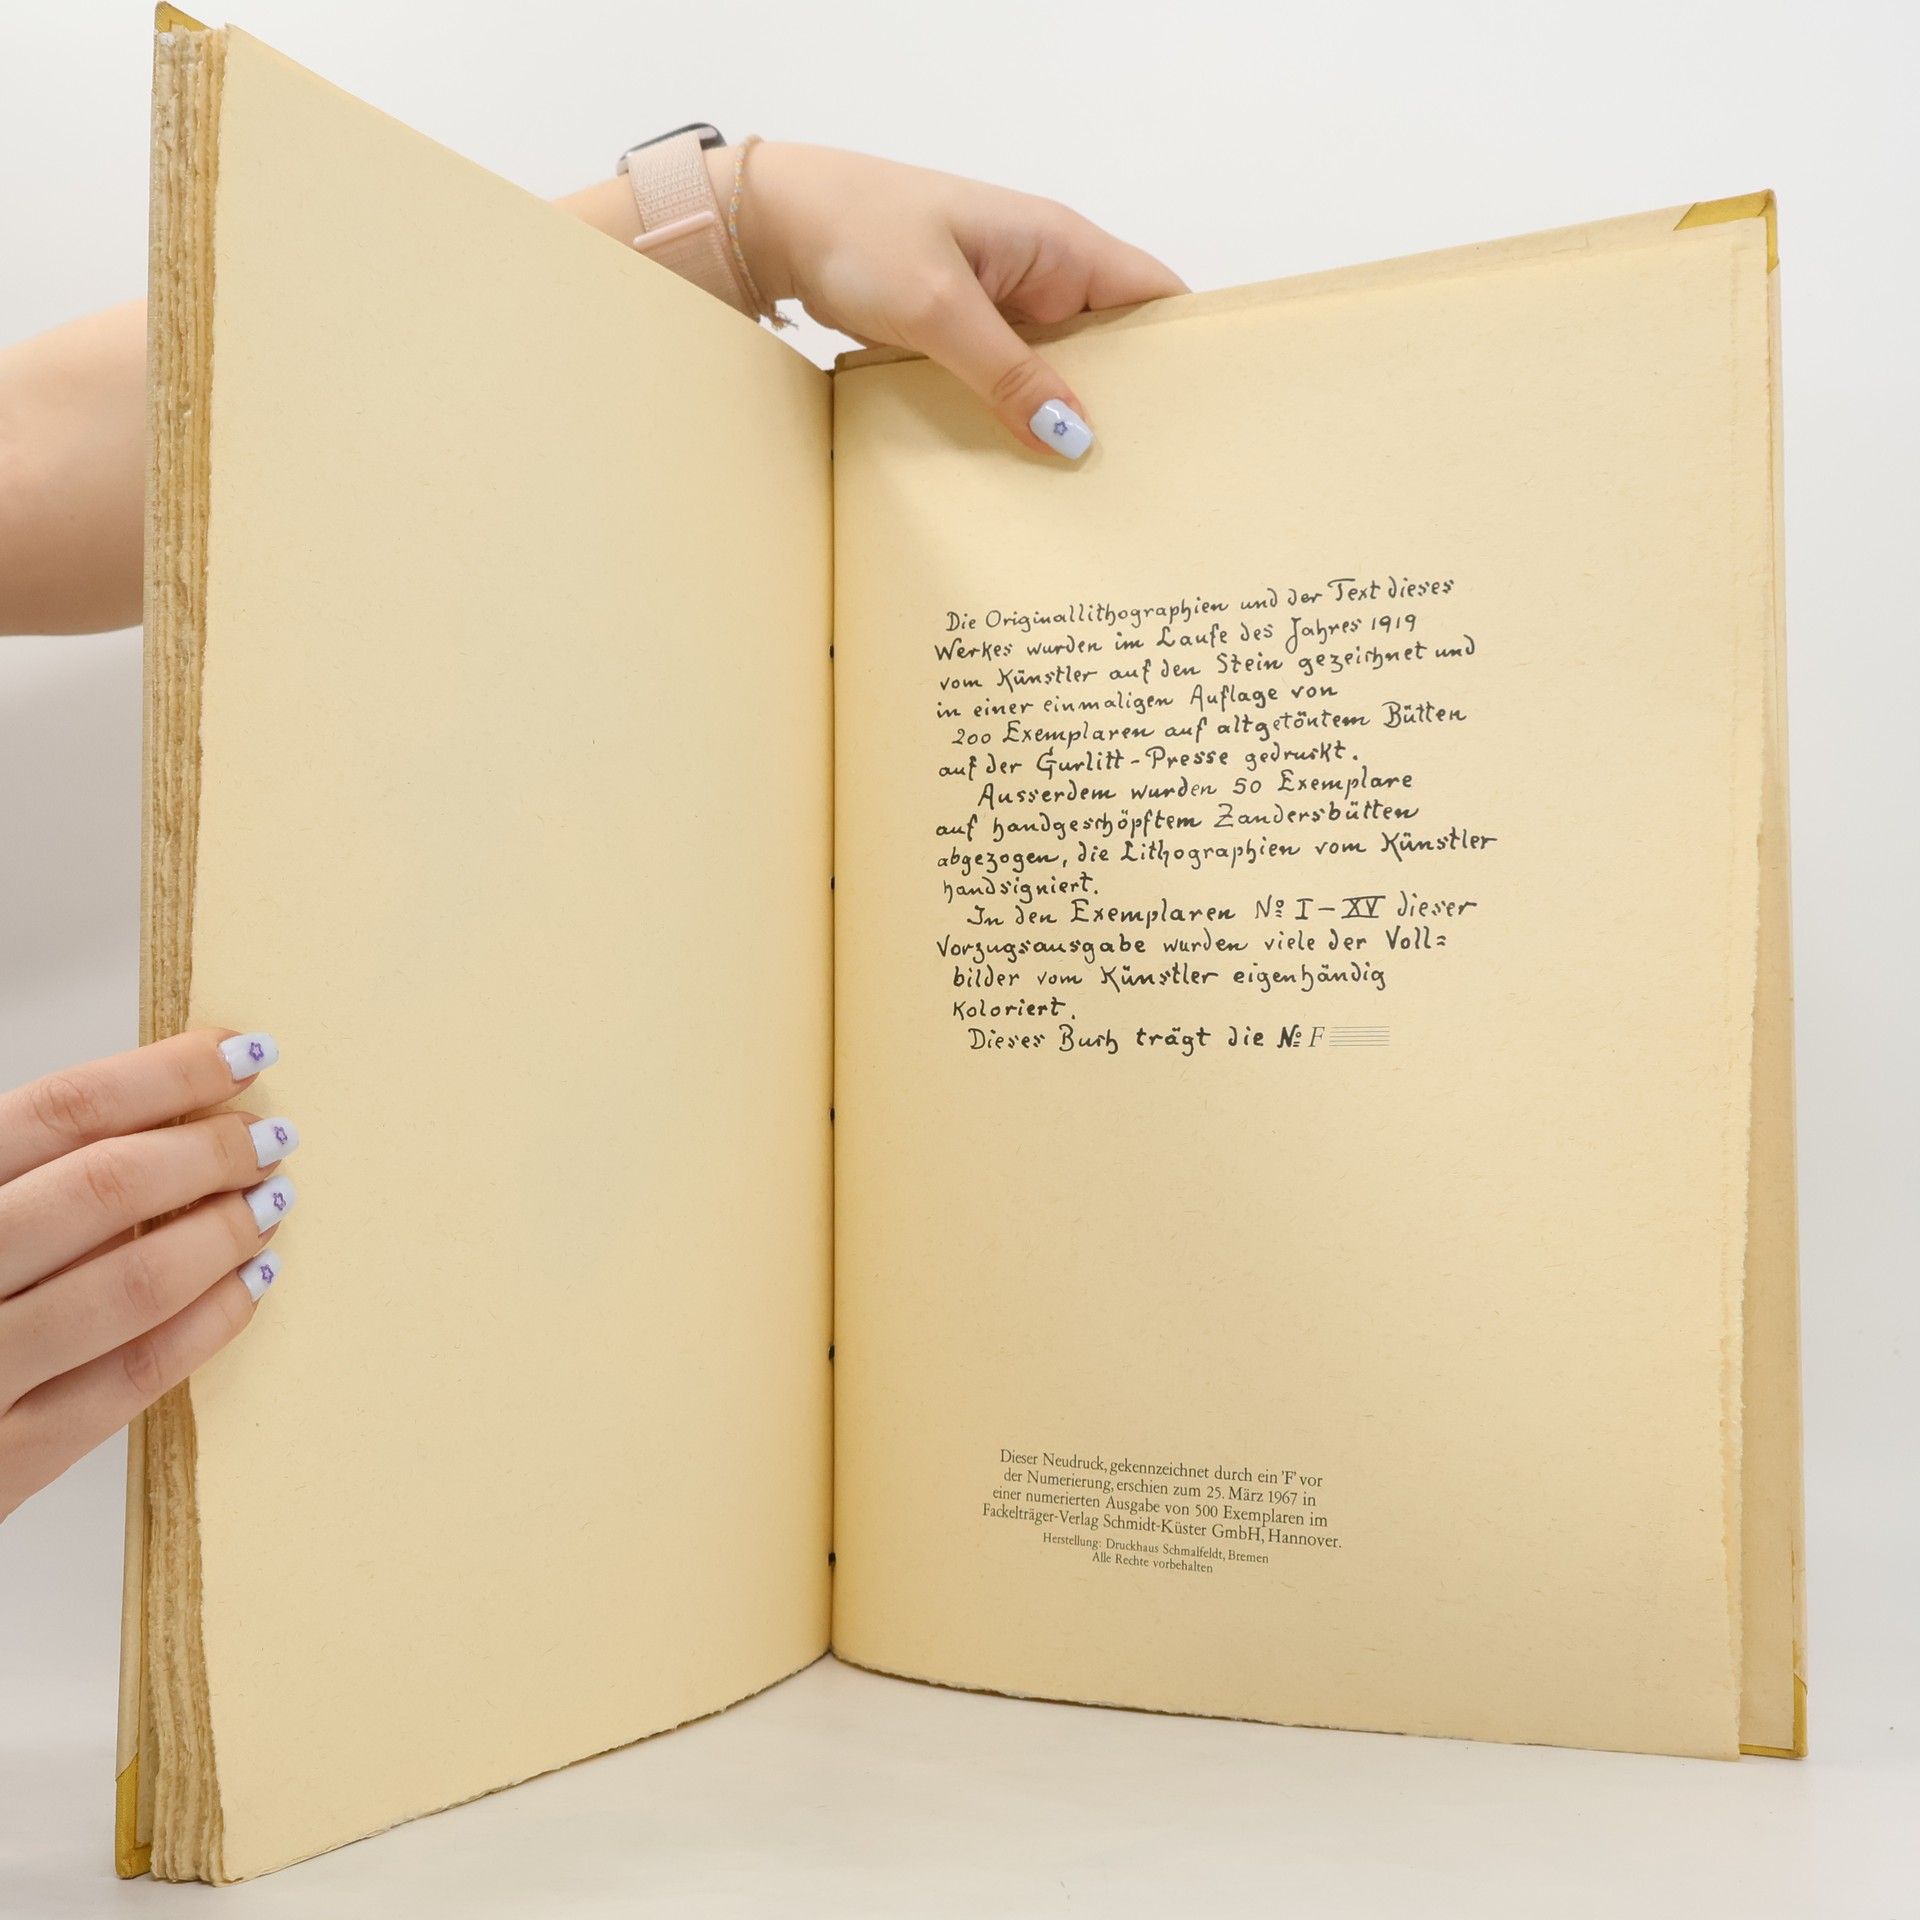 Die Originallithographien und der Text dieses
Werkes wurden im Laufe des Jahres 1919
vom Künstler auf den Stein gezeichnet und
in einer einmaligen Auflage von
200 Exemplaren auf altgetöntem Bütten
auf der Gurlitt-Presse gedruckt.
Ausserdem wurden 50 Exemplare
auf handgeschöpftem Zandersbütten
abgezogen, die Lithographien vom Künstler
handsigniert.
In den Exemplaren No I-XV dieser
Vorzugsausgabe wurden viele der Voll=
bilder vom Künstler eigenhändig
Koloriert.
Dieses Buch trägt die No F
Dieser Neudruck, gekennzeichnet durch ein 'F' vor
der Numerierung, erschien zum 25. März 1967 in
einer numerierten Ausgabe von 500 Exemplaren im
Fackelträger-Verlag Schmidt-Küster GmbH, Hannover.
Herstellung: Druckhaus Schmalfeldt, Bremen
Alle Rechte vorbehalten